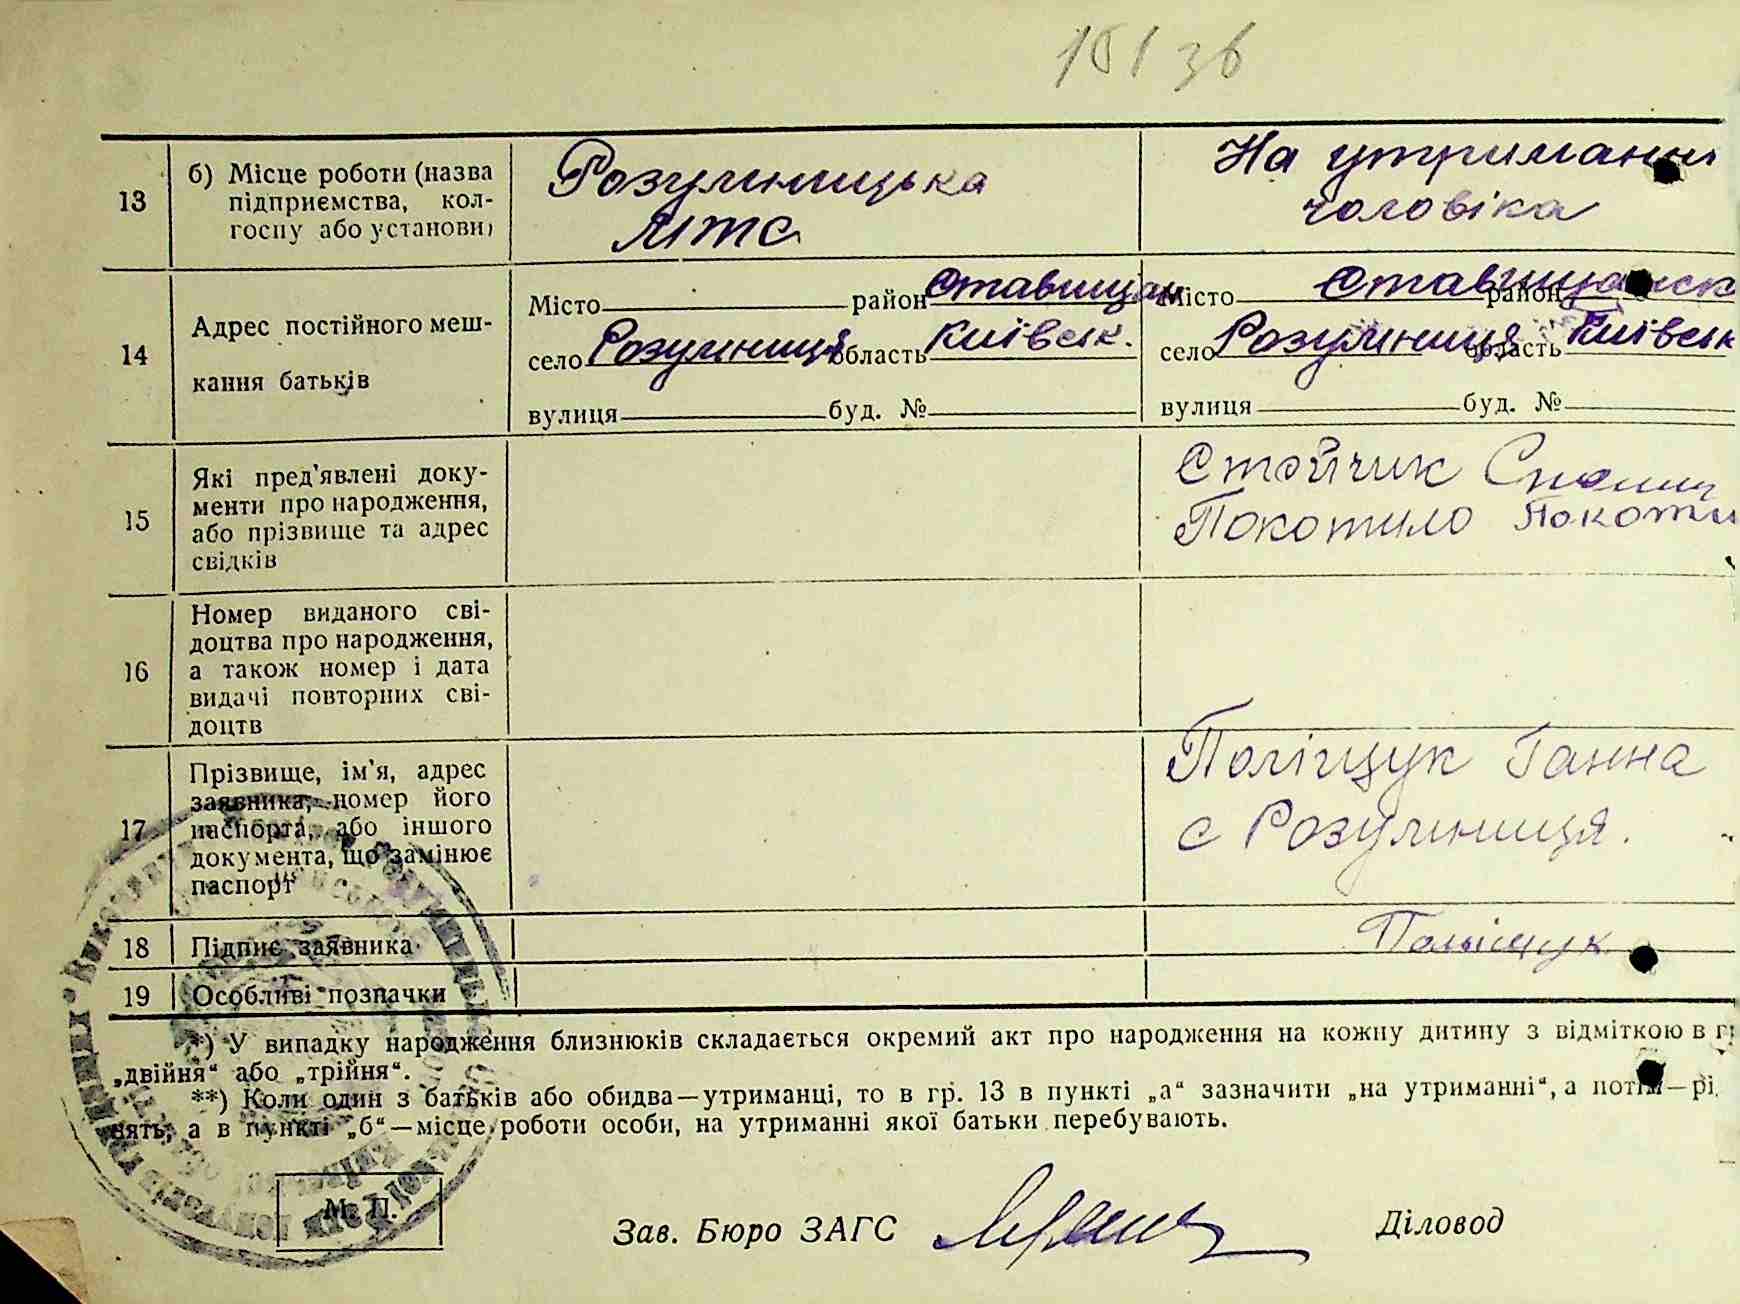 13 б) Місце роботи (назва підприємства, кол-
госпу або установи) Розумницька МТС На утриманні чоловіка
14 Адрес постійного меш-
кання батьків
Місто район Ставищан Місто район Ставищанськ
село Розумниця область Київськ. село Розумниця область Київськ
вулиця буд. № вулиця буд. №
15 Які пред'явлені доку-
менти про народження,
або прізвище та адрес
свідків
Стойчик
Покотило
16 Номер виданого сві-
доцтва про народження,
а також номер і дата
видачі повторних сві-
доцтв
17 Прізвище, ім'я, адрес
заявника, номер його
паспорта, або іншого
документа, що замінює
паспорт
Поліщук Ганна
с Розумниця.
18 Підпис заявника Поліщук
19 Особливі позначки
*) У випадку народження близнюків складається окремий акт про народження на кожну дитину з відміткою в г
„двійня“ або „трійня“.
**) Коли один з батьків або обидва—утриманці, то в гр. 13 в пункті „а“ зазначити „на утриманні“, а потім—рі
нять, а в пункті „б“—місце роботи особи, на утриманні якої батьки перебувають.
М. П.
Зав. Бюро ЗАГС Діловод